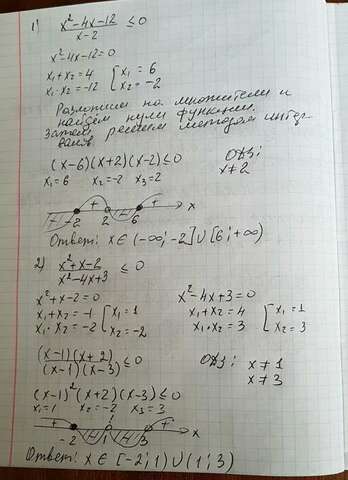 1) (x²-4x-12)/(x-2) ≤ 0
x²-4x-12=0
x₁+x₂=4 { x₁=6
x₁·x₂=-12 { x₂=-2
Разложим на множители и
найдём нули функции.
Затем, решаем методом интер-
валов.
(x-6)(x+2)(x-2)≤0 ОДЗ:
x₁=6 x₂=-2 x₃=2 x≠2
- + - + x
-2 2 6
Ответ: x∈(-∞;-2]∪[6;+∞)
2) (x²+x-2)/(x²-4x+3) ≤ 0
x²+x-2=0 x²-4x+3=0
x₁+x₂=-1 { x₁=1 x₁+x₂=4 { x₁=1
x₁·x₂=-2 { x₂=-2 x₁·x₂=3 { x₂=3
((x-1)(x+2))/((x-1)(x-3)) ≤0 ОДЗ: x≠1
x≠3
(x-1)²(x+2)(x-3)≤0
x₁=1 x₂=-2 x₃=3
+ - - + x
-2 1 3
Ответ: x∈[-2;1)∪(1;3)